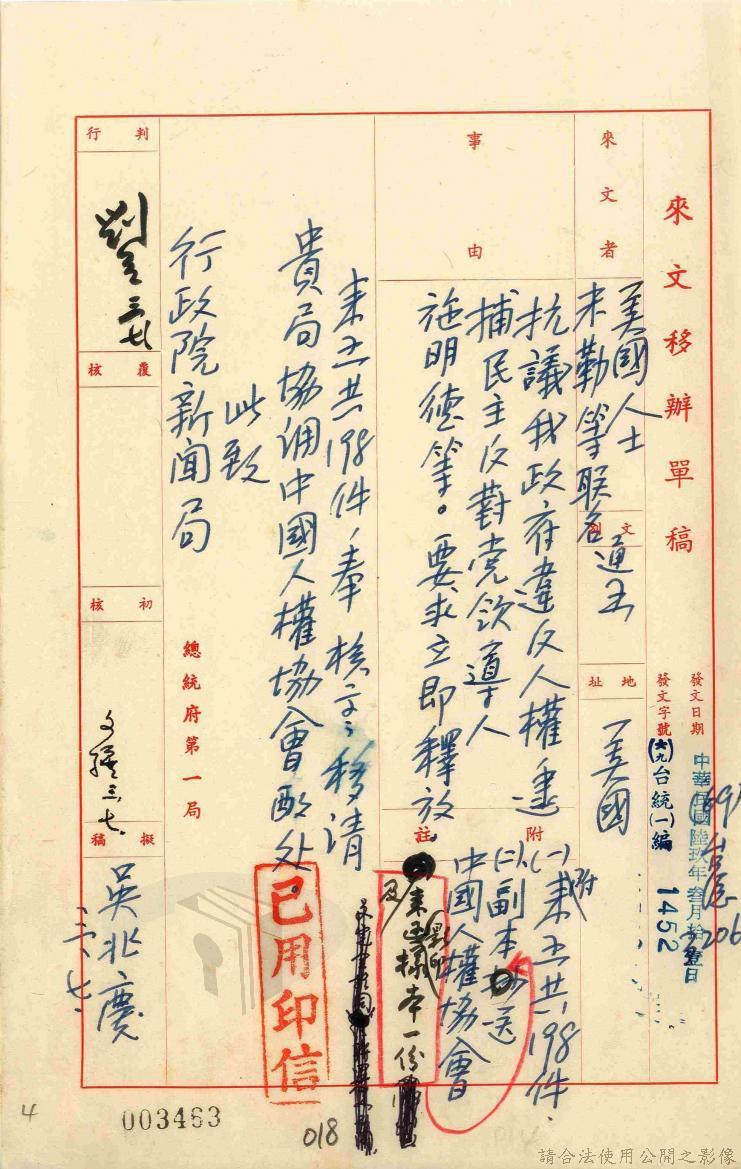 來文移辦單稿
發文日期
中華民國陸玖年叁月拾壹日
發文字號
(六九)台統(一)編 1452
來文者
美國人士
未勒等聯名通函
文別
地址
美國
事由
抗議我政府違反人權逮
捕民主反對党領導人
施明德等。要求立即釋放。
附註
(一)附來函共198件.
(二)副本抄送
中國人權協會
及來函影印樣本一份
來函共198件,奉核示移請
貴局協調中國人權協會酌处。
此致
行政院新聞局
總統府第一局
判行
三.七
覆核
初核
三.七.
擬稿
吳兆慶
三.七.
已用印信
4
003463
018
014
請合法使用公開之影像